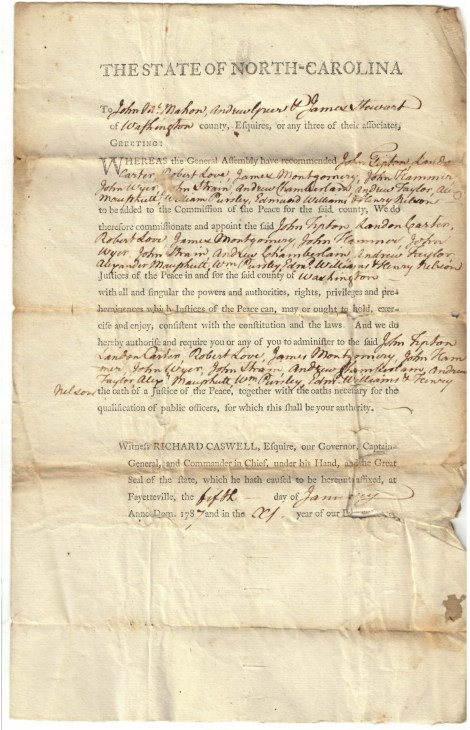 THE STATE OF NORTH-CAROLINA
To John Mc Mahon, Andrew Greer & James Stewart
of Washington county, Esquires, or any three of their associates,
GREETING:
WHEREAS the General Assembly have recommended John Tipton, Landon
Carter, Robert Love, James Montgomery, John Hammer,
John Wyer, John Strain, Andrew Chamberlain, Andrew Taylor, Alex
Mauphett, William Pursley, Edmund Williams & Henry Nelson
to be added to the Commission of the Peace for the said county, We do
therefore commissionate and appoint the said John Tipton Landon Carter,
Robert Love James Montgomery, John Hammer, John
Wyer, John Strain, Andrew Chamberlain, Andrew Taylor,
Alexander Mauphett, Wm Pursley, Edm. Williams & Henry Nelson
Justices of the Peace in and for the said county of Washington
with all and singular the powers and authorities, rights, privileges and pre-
heminences which Justices of the Peace can, may or ought to hold, exer-
cise and enjoy, consistent with the constitution and the laws. And we do
hereby authorise and require you or any of you to administer to the said John Tipton
Landon Carter, Robert Love, James Montgomery, John Ham
mer, John Wyer, John Strain, Andrew Chamberlain, Andrew
Taylor, Alexr Mauphett, Wm Pursley, Edmd Williams & Henry
Nelson the oath of a Justice of the Peace, together with the oaths necessary for the
qualification of public officers, for which this shall be your authority.
Witness RICHARD CASWELL, Esquire, our Governor, Captain-
General, and Commander in Chief, under his Hand, and the Great
Seal of the state, which he hath caused to be hereunto affixed, at
Fayetteville, the fifth day of January
Anno Dom. 1787 and in the XI year of our